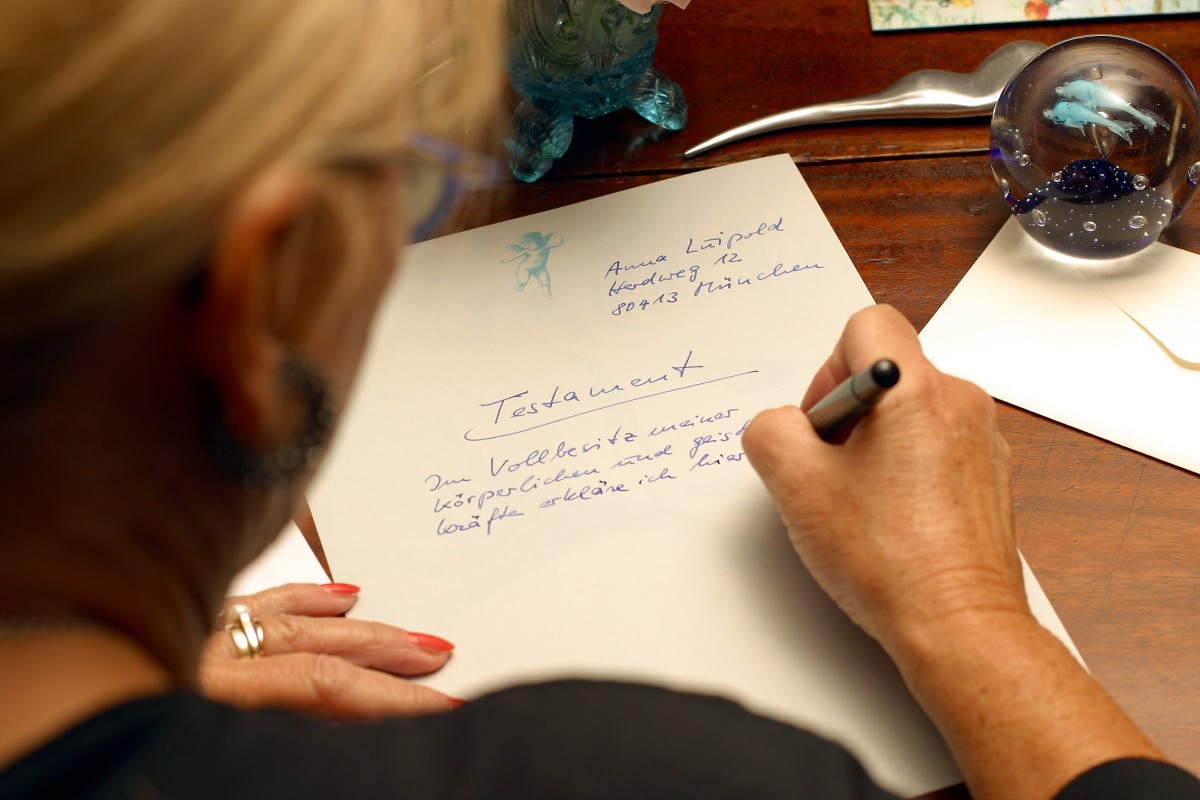 Anna Luipold
Herdweg 12
80413 München
Testament
Im Vollbesitz meiner
körperlichen und geist
kräfte erkläre ich hier